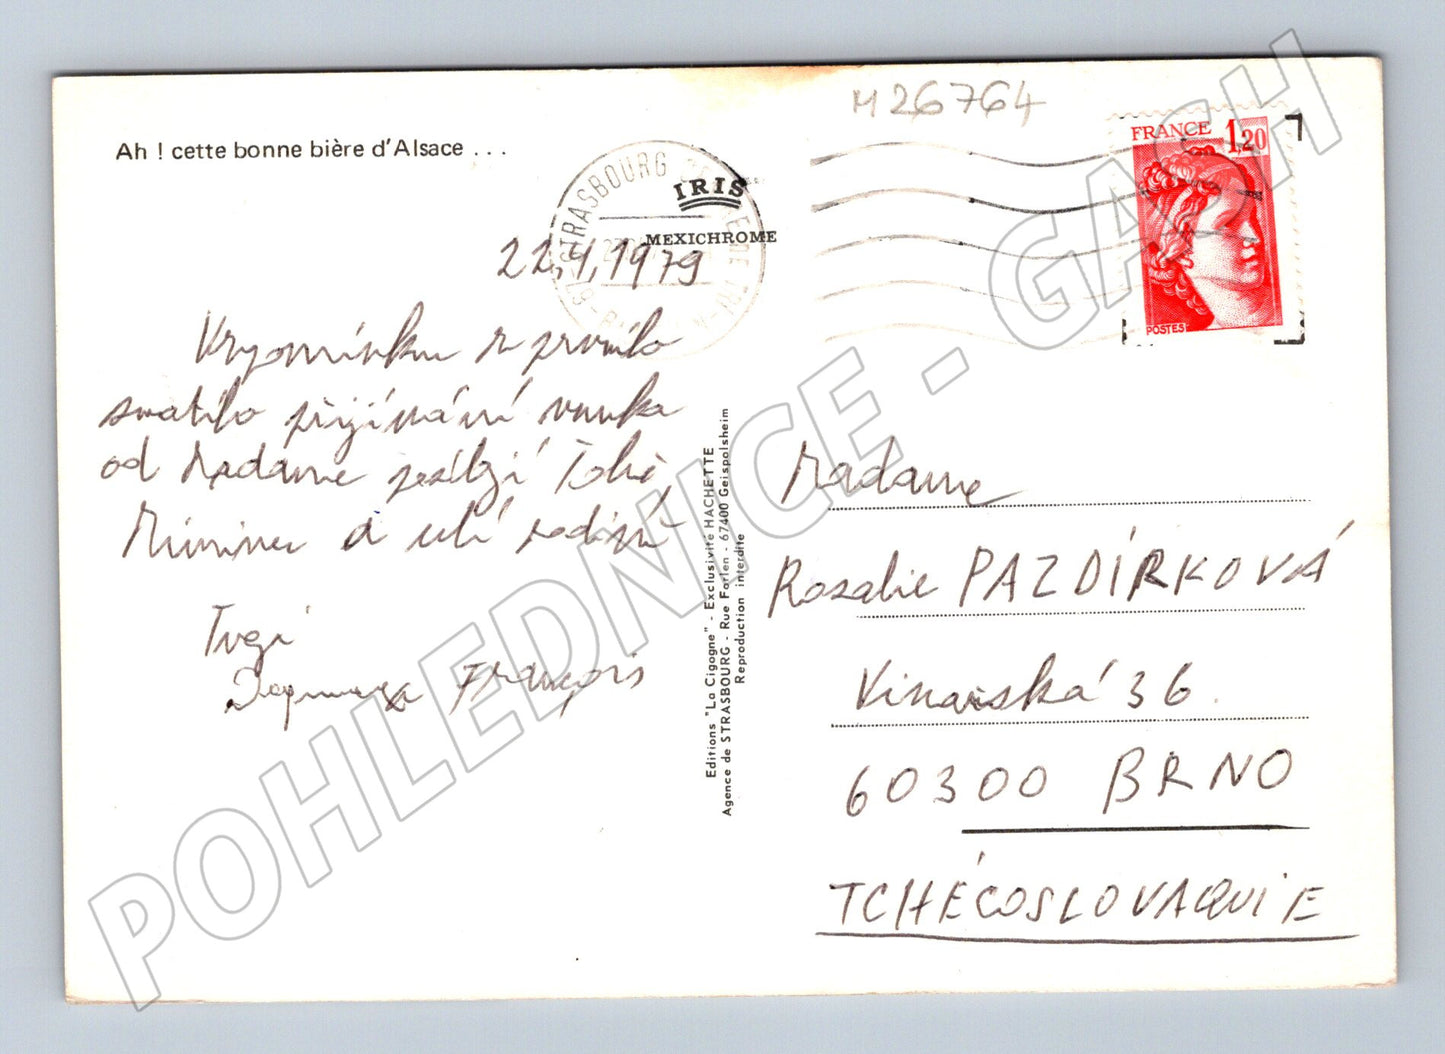 Ah ! cette bonne bière d'Alsace . . .
M 26764
FRANCE 1,20
POSTES
STRASBOURG
IRIS
MEXICHROME
22,4,1979
Vzpomínku z prvního
svatého přijímání vnuka
od Madame posílají Tobě,
a celé rodině
Tvoji
François
Editions "La Cigogne" - Exclusivité HACHETTE
Agence de STRASBOURG - Rue Forlen - 67400 Geispolsheim
Reproduction interdite
Madame
Rozalie PAZDÍRKOVÁ
Vinařská 36
60300 BRNO
TCHÉCOSLOVAQUIE
POHLEDNICE - GASH